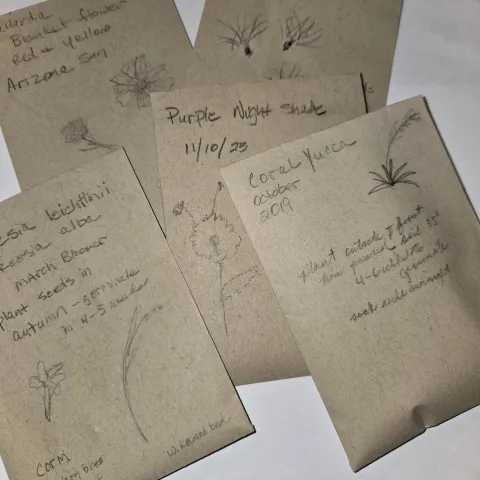 Blanket flower
Red & yellow
Arizona Sun
Purple Night Shade
11/10/23
Coral Yucca
October
2019
Plant outside
soil 55°
4-6 weeks to
germinate
soak seeds overnight
esia leichtlinii
eesia alba
March Bloomer
plant seeds in
autumn - germinate
in 4-5 weeks
Corm
W. Raised bed